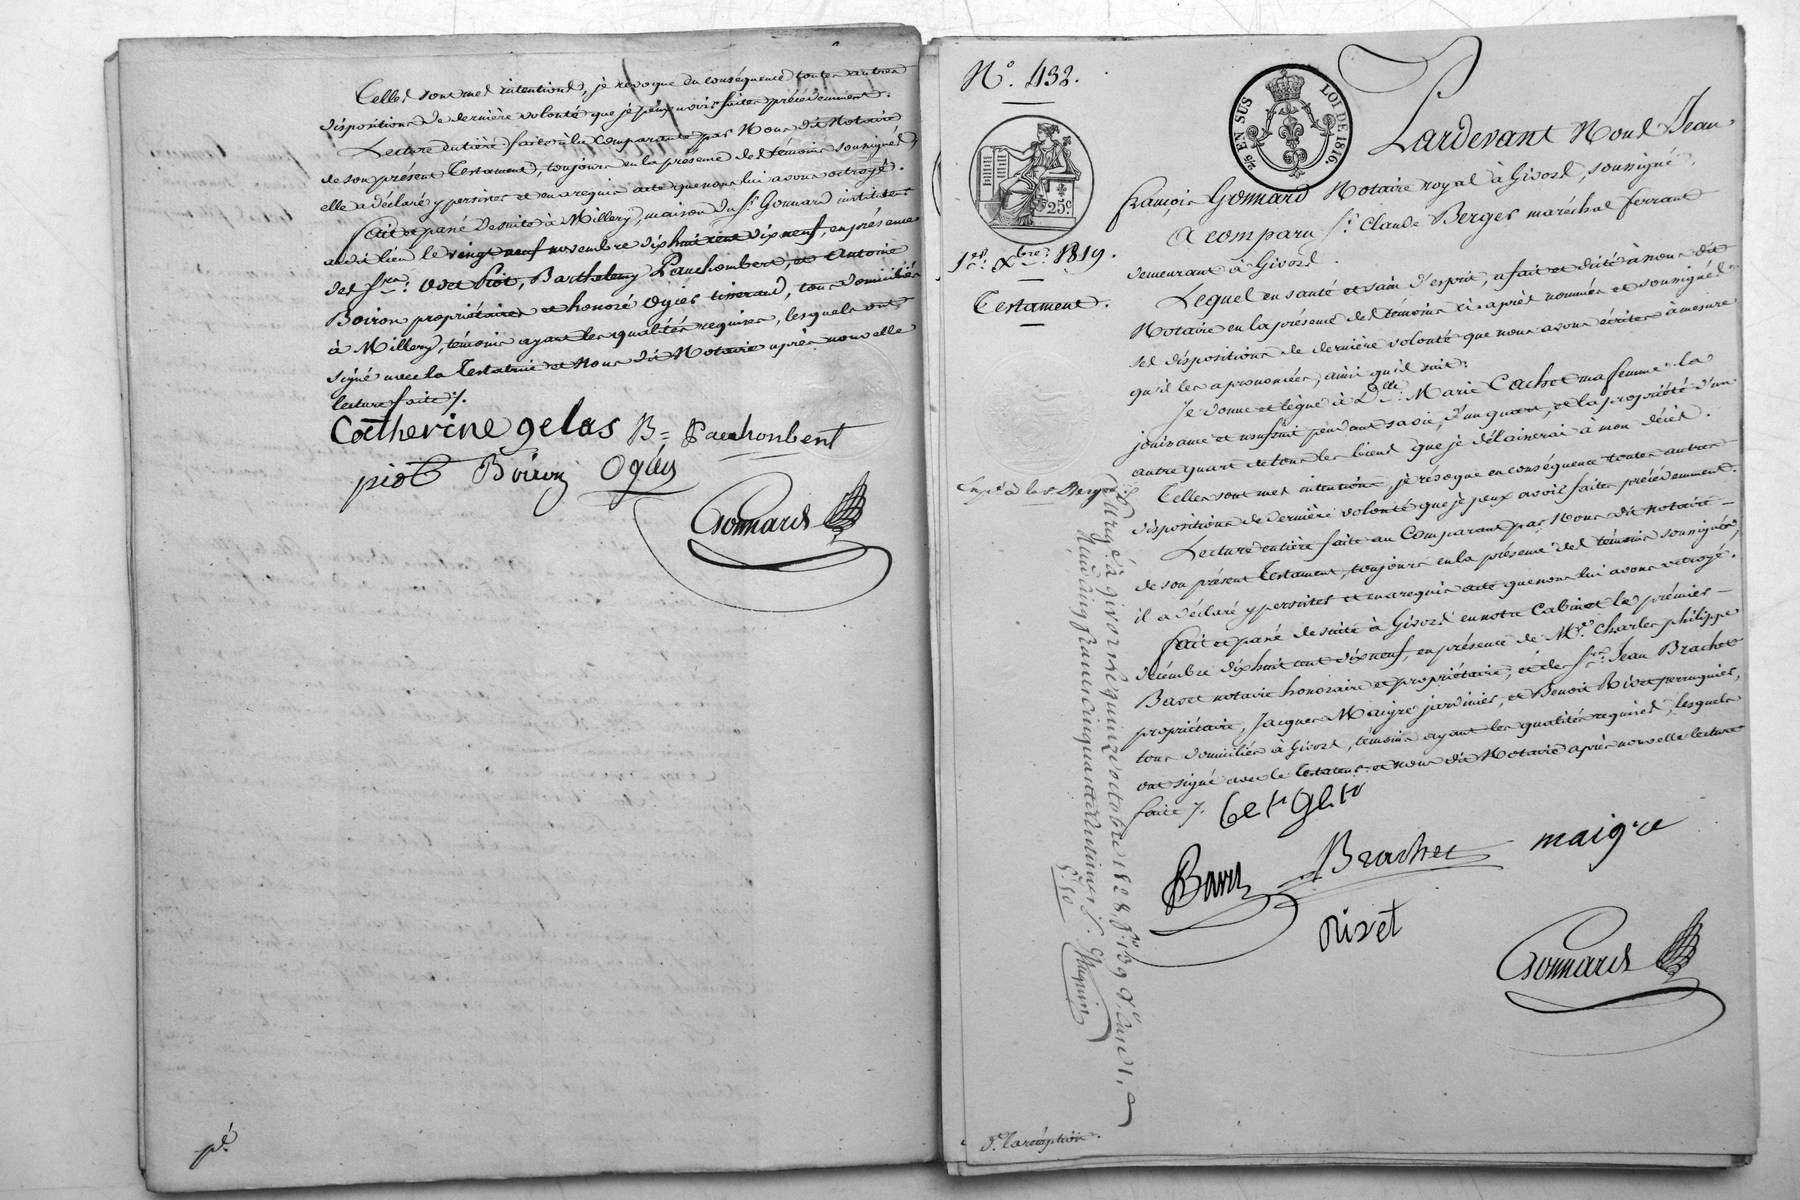 Telles sont mes intentions, je révoque en conséquence toutes autres
dispositions de dernière volonté que je peux avoir faites précédemment.
Lecture entière faite à la Comparante par Nous dit Notaire
de son présent Testament, toujours en la présence des témoins soussignés,
elle a déclaré y persister et en a requis acte que nous lui avons octroyé.
fait et passé de suite à Millery, maison du Sr. Gonnard instituteur
audit lieu le vingt neuf novembre dix huit cent dix neuf, en présence
des Srs. Piot, Barthelemy Pauchombert, et Antoine
Boiron propriétaires et honoré Ogier tisserand, tous domiciliés
à Millery, témoins ayant les qualités requises, lesquels ont
signé avec la Testatrice et Nous dit Notaire après nouvelle
lecture faite ./.
Catherine gelas B= Pauchonbert
piot Boiron Ogier
Gonnard
pé
N.° 432.
5/4 EN SUS
LOI DE 1816.
25c
1er. Xbre. 1819.
Testament.
Pardevant Nous Jean
françois Gonnard Notaire royal à Givors, soussigné,
A comparu Sr. Claude Berger maréchal ferrant
demeurant à Givors.
Lequel en santé et sain d'esprit, a fait et dicté à nous dit
Notaire en la présence des témoins ci-après nommés et soussignés
ses dispositions de dernière volonté que nous avons écrites à mesure
qu'il les a prononcées, ainsi qu'il suit:
Je donne et lègue à Dlle. Marie Cachet ma femme, la
jouissance et usufruit pendant sa vie, d'un quart, et la propriété d'un
autre quart de tous les biens que je délaisserai à mon décès.
Telles sont mes intentions, je révoque en conséquence toutes autres
dispositions de dernière volonté que je peux avoir faites précédemment.
Lecture entière faite au Comparant par Nous dit Notaire
de son présent Testament, toujours en la présence des témoins soussignés,
il a déclaré y persister et en a requis acte que nous lui avons octroyé.
fait et passé de suite à Givors en notre Cabinet le premier
décembre dix huit cent dix neuf, en présence de Me. Charles philippe
Bavet notaire honoraire et propriétaire, et de Srs. Jean Brachet
propriétaire, Jacques Maigre jardinier, et Benoit Rivet perruquier,
tous domiciliés à Givors, témoins ayant les qualités requises, lesquels
ont signé avec le testateur et nous dit Notaire après nouvelle lecture
faite ./.
Brachet maigre
Rivet
Gonnard
Exp. à la Ve. Berger
Enregistré à givors le quinze octobre 1828, f° 139
Reçu cinq francs cinquante centimes
5f. 50